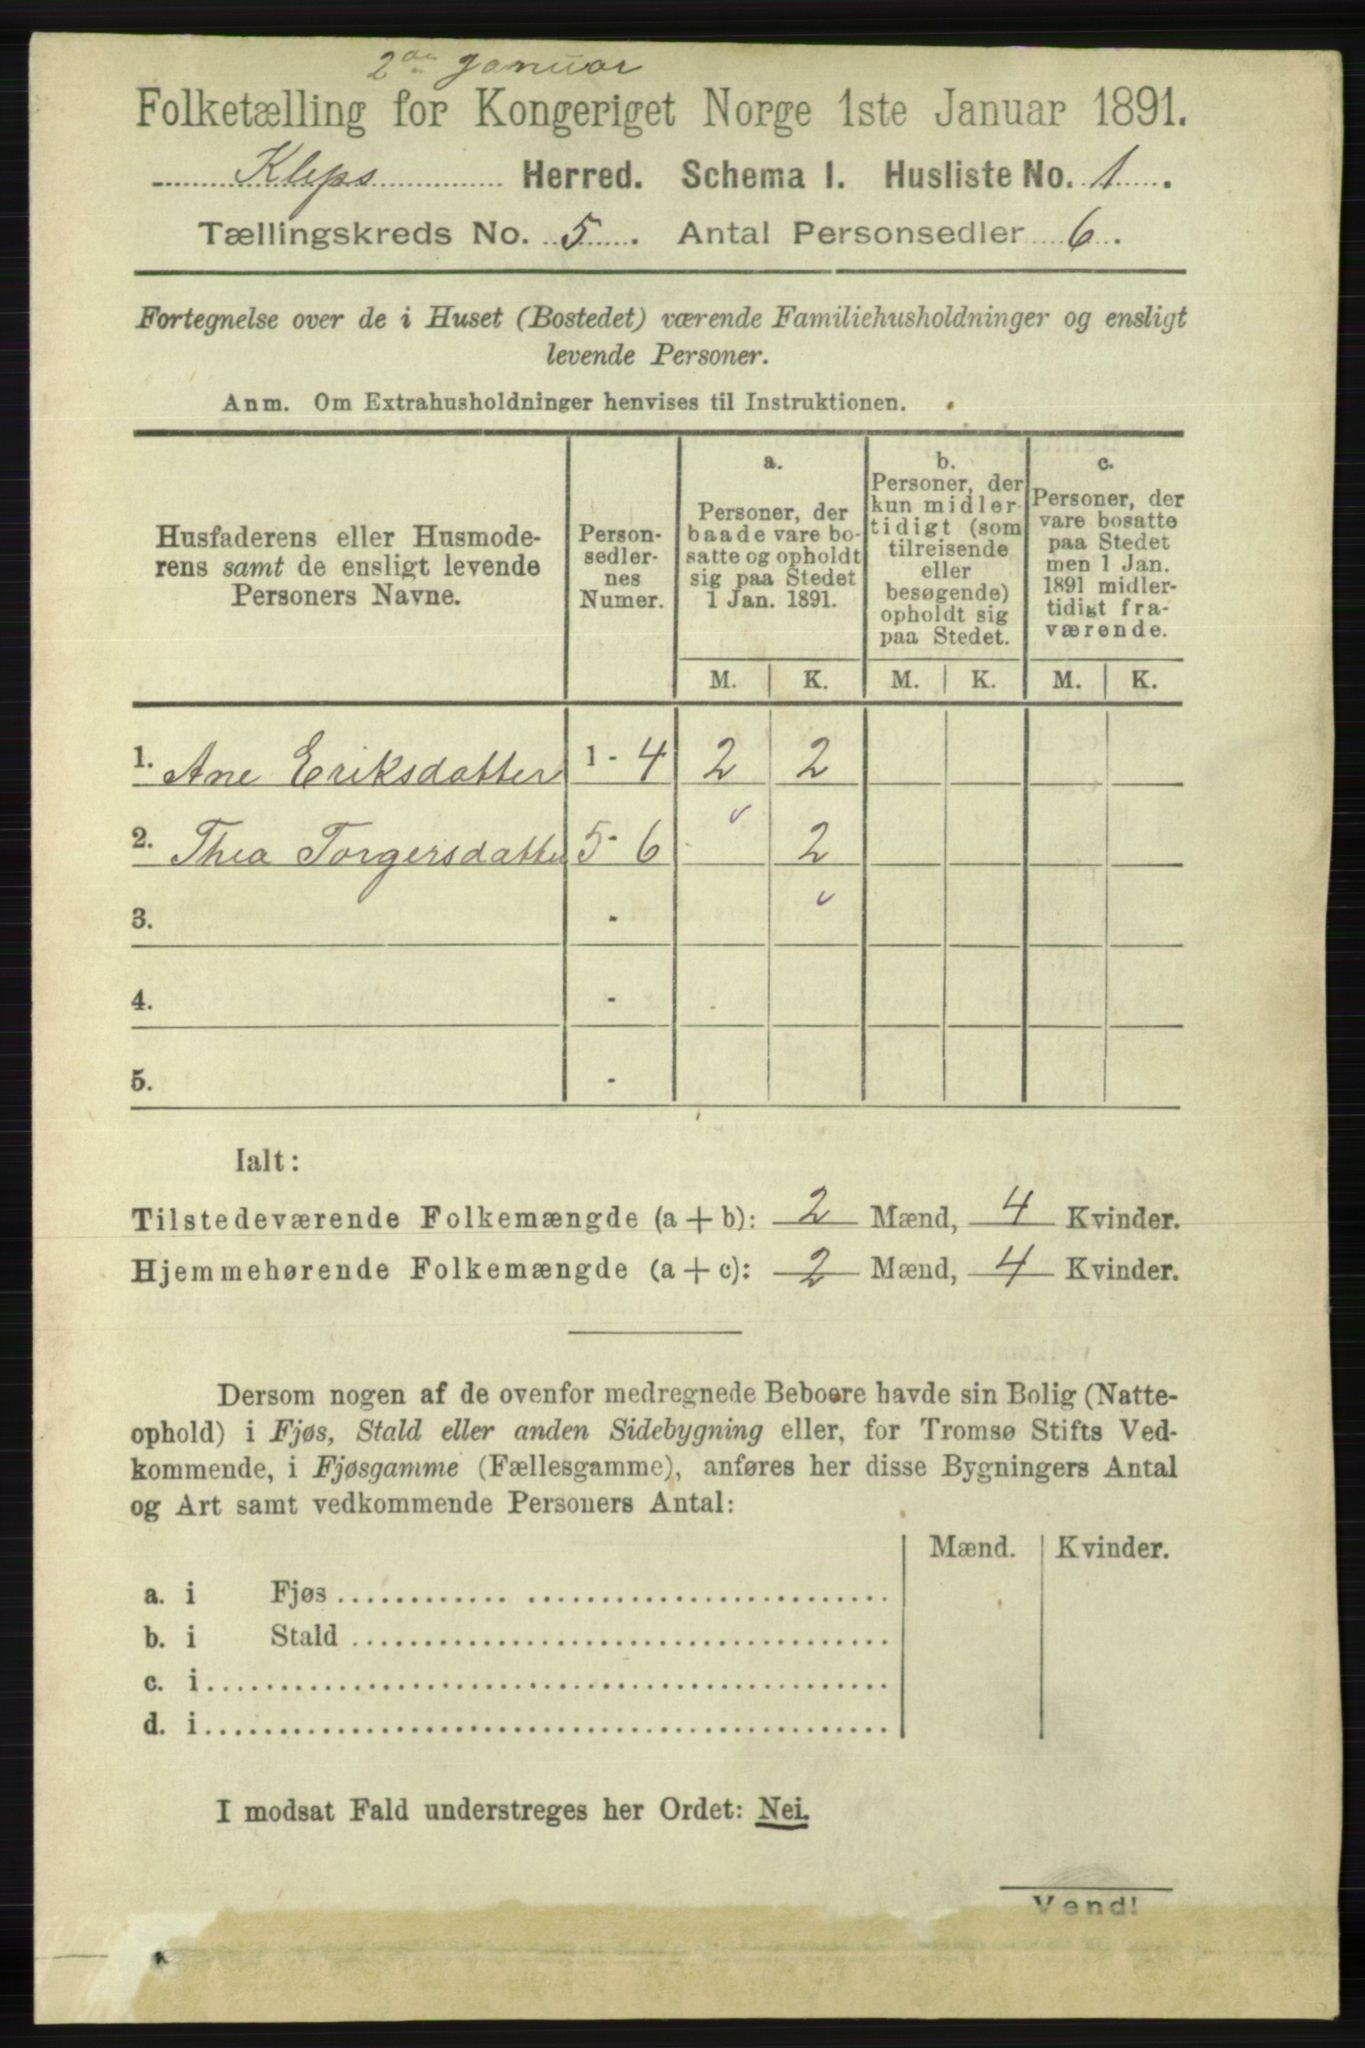 2den Januar
Folketælling for Kongeriget Norge 1ste Januar 1891.
Kleps Herred. Schema I. Husliste No. 1.
Tællingskreds No. 5. Antal Personsedler 6.
Fortegnelse over de i Huset (Bostedet) værende Familiehusholdninger og ensligt
levende Personer.
Anm. Om Extrahusholdninger henvises til Instruktionen.
Husfaderens eller Husmode-
rens samt de ensligt levende
Personers Navne.
Person-
sedler-
nes
Numer.
a.
Personer, der
baade vare bo-
satte og opholdt
sig paa Stedet
1 Jan. 1891.
b.
Personer, der
kun midler-
tidigt (som
tilreisende
eller
besøgende)
opholdt sig
paa Stedet.
c.
Personer, der
vare bosatte
paa Stedet
men 1 Jan.
1891 midler-
tidigt fra-
værende.
M. K. M. K. M. K.
1. Ane Eriksdatter 1 - 4 2 2
2. Thea Torgersdatter 5 - 6 2
3. -
4. -
5. -
Ialt:
Tilstedeværende Folkemængde (a + b): 2 Mænd, 4 Kvinder.
Hjemmehørende Folkemængde (a + c): 2 Mænd, 4 Kvinder.
Dersom nogen af de ovenfor medregnede Beboere havde sin Bolig (Natte-
ophold) i Fjøs, Stald eller anden Sidebygning eller, for Tromsø Stifts Ved-
kommende, i Fjøsgamme (Fællesgamme), anføres her disse Bygningers Antal
og Art samt vedkommende Personers Antal:
Mænd. Kvinder.
a. i Fjøs
b. i Stald
c. i
d. i
I modsat Fald understreges her Ordet: Nei.
Vend!